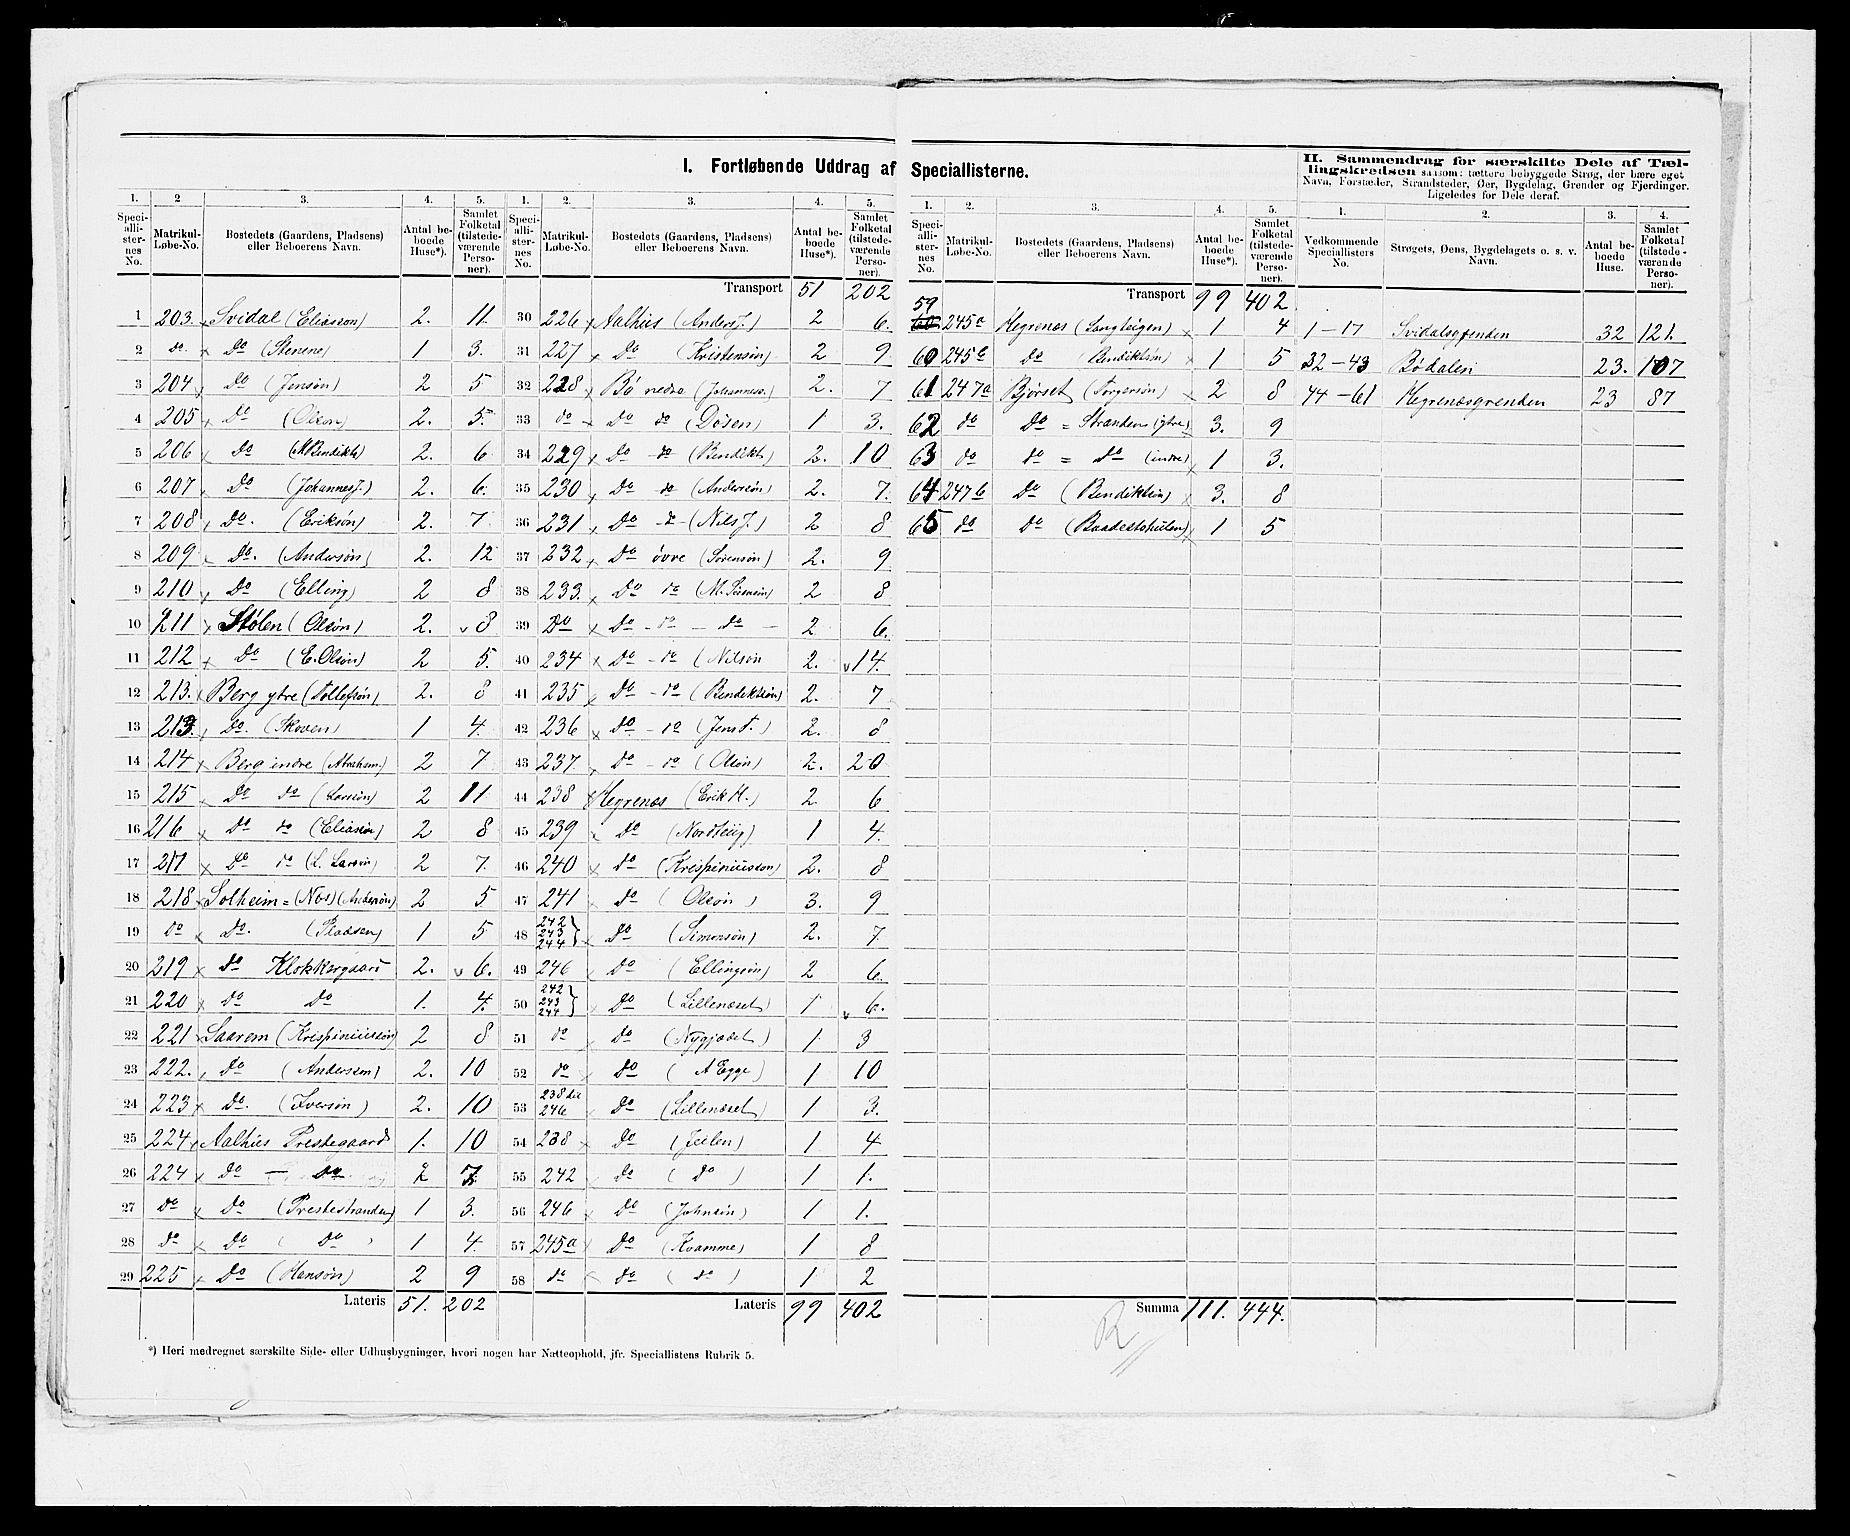 I. Fortløbende Uddrag af Speciallisterne.
II. Sammendrag for særskilte Dele af Tællingskredsen saasom: tættere bebyggede Strøg, der bære eget
Navn, Forstæder, Strandsteder, Øer, Bygdelag, Grender og Fjerdinger.
Ligeledes for Dele deraf.
1. 2 3. 4. 5.
Speciallisternes No. Matrikul-Løbe-No. Bostedets (Gaardens, Pladsens) eller Beboerens Navn. Antal beboede Huse*). Samlet Folketal (tilstedeværende Personer).
1 203. Svidal (Eliasson) 2. 11.
2 do Do (Stenene) 1 3.
3 204 Do (Jensøn) 2 5
4 205 Do (Olson) 2. 5.
5 206 Do (M Bendikts) 2. 6
6 207 Do (Johannes J.) 2. 6.
7 208 Do. (Eriksøn) 2. 7
8 209 Do. (Andersøn) 2. 12
9 210 Do (Elling) 2 8
10 211 Stølen (Olsøn) 2. 8
11 212 Do (E. Olsøn) 2 5.
12 213. Berg ytre (Tollefsøn) 2. 8
13 213. Do. (Skoven) 1 4.
14 214 Berg indre (Abraham.) 2 7.
15 215 Do do (Larsøn) 2 11
16 216 Do do (Eliasøn) 2 8
17 217 Do do (L. Larsøn) 2 7.
18 218 Solheim = (Nos) (Andersøn) 2 5
19 do Do. (Pladsen) 1 5
20 219 do Klokkergaard 2. 6.
21 220 Do Do 1. 4.
22 221 Saarem (Krispiniussøn) 2 8
23 222. Do (Anderssøn) 2. 10
24 223 Do. (Iversøn) 2. 10
25 224 Aalhus Prestegaard 1. 10
26 224 Do — Do 2 7.
27 do Do (Prestestranden) 1 3.
28 do Do ( Do ) 1 4.
29 225 Do (Hansøn) 2 9
Lateris 51. 202
*) Heri medregnet særskilte Side- eller Udhusbygninger, hvori nogen har Natteophold, jfr. Speciallistens Rubrik 5.
1. 2. 3. 4. 5.
Speciallisternes No. Matrikul-Løbe-No. Bostedets (Gaardens, Pladsens) eller Beboerens Navn. Antal beboede Huse*). Samlet Folketal (tilstedeværende Personer).
Transport 51 202
30 226 Aalhus (Anders J.) 2 6.
31 227 Do (Kristensøn) 2 9
32 228 Bø nedre (Johanness.) 2. 7
33 do Do do Døsen) 1 3.
34 229 Do do (Bendikts) 2. 10
35 230 Do do (Andersøn) 2. 7.
36 231 Do do (Nils J.) 2 8
37 232 Do øvre (Sørensøn) 2. 9
38 233. Do do (M. Sørensøn) 2 8
39 Do Do - do - do - 2 6.
40 234 Do - do (Nilsøn 2. 14.
41 235 Do - do (Bendiktsøn) 2. 7
42 236 Do - do (Jens A.) 2. 8
43 237. Do - do (Olsøn) 2. 20
44 238 Hegrenæs (Erik H.) 2 6
45 239 Do (Nordteig) 1 4.
46 240 Do (Krispiniusson) 2. 8
47 241 Do (Olsøn) 3. 9
48 242 243 244 } Do (Simonsøn) 2. 7
49 246 Do (Ellingsøn) 2 6.
50 242 243 244 } Do (Lillenæset) 1 6.
51 do Do (Nygjædet) 1 3
52 do Do ( A Egge) 1 10
53 238 til 246 Do (Lillenæset) 1 3.
54 238 Do (Jeilen) 1 4
55 242 Do ( Do ) 1 1.
56 246 Do (Johnsøn) 1 1.
57 245a Do (Kvamme) 1 8
58 do Do ( do ) 1 2
Lateris 99 402
1. 2. 3. 4. 5.
Speciallisternes No. Matrikul-Løbe-No. Bostedets (Gaardens, Pladsens) eller Beboerens Navn. Antal beboede Huse*). Samlet Folketal (tilstedeværende Personer).
Transport 99 402
59 245a Hegrenes (Langteigen) 1 4
60 245b do (Bendiktsøn) 1 5
61 247a Bjørset (Torgersøn) 2 8
62 do Do = Stranden (ytre) 3. 9
63 do do = do (indre) 1 3.
64 247b Do (Bendiktsøn) 3. 8
65 do Do (Baadestohulen) 1 5
Summa 111. 444.
1. 2. 3. 4.
Vedkommende Speciallisters No. Strøgets, Øens, Bygdelagets o. s. v. Navn. Antal beboede Huse. Samlet Folketal (tilstedeværende Personer).
1-17 Svidalsgrenden 32 121.
32-43 Bødalen 23. 107
44-61 Hegrenæsgrenden 23 87